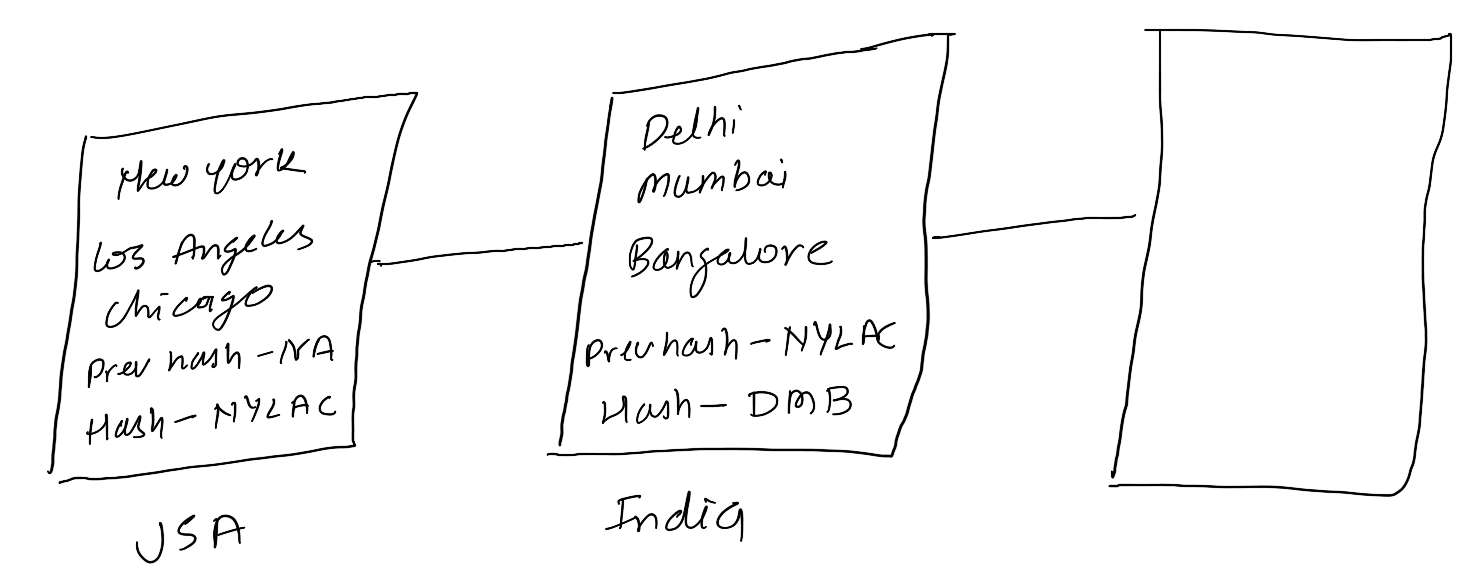 New york
Los Angeles
Chicago
Prev hash - NA
Hash - NYLAC
USA
Delhi
Mumbai
Bangalore
Prev hash - NYLAC
Hash - DMB
India